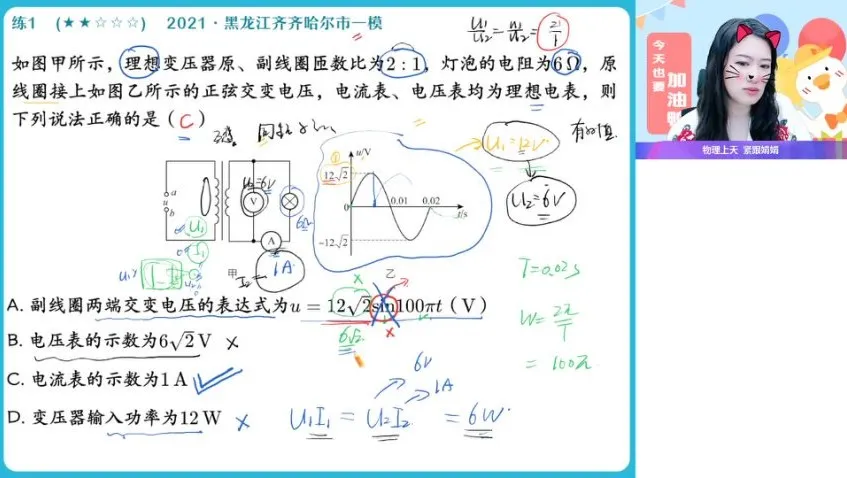 练1 (★★☆☆☆) 2021·黑龙江齐齐哈尔市一模
U₁/U₂ = n₁/n₂ = 2/1
如图甲所示，理想变压器原、副线圈匝数比为2:1，灯泡的电阻为6Ω，原
线圈接上如图乙所示的正弦交变电压，电流表、电压表均为理想电表，则
下列说法正确的是（C）
U₁=12V
有效值
U₂=6V
U₂=6V
a
u
b
V
A
6Ω
U₁
I₁
甲
I₂=1A
u/V
①
12√2
0
0.01
0.02
t/s
-12√2
乙
T=0.02s
W=2π/T
=100π
A. 副线圈两端交变电压的表达式为u=12√2sin100πt（V）
6√2
B. 电压表的示数为6√2V ×
C. 电流表的示数为1A ✓
6V
1A
D. 变压器输入功率为12W ×
U₁I₁ = U₂I₂ = 6W
今天也要
加油鸭
物理上天 紧跟娟娟